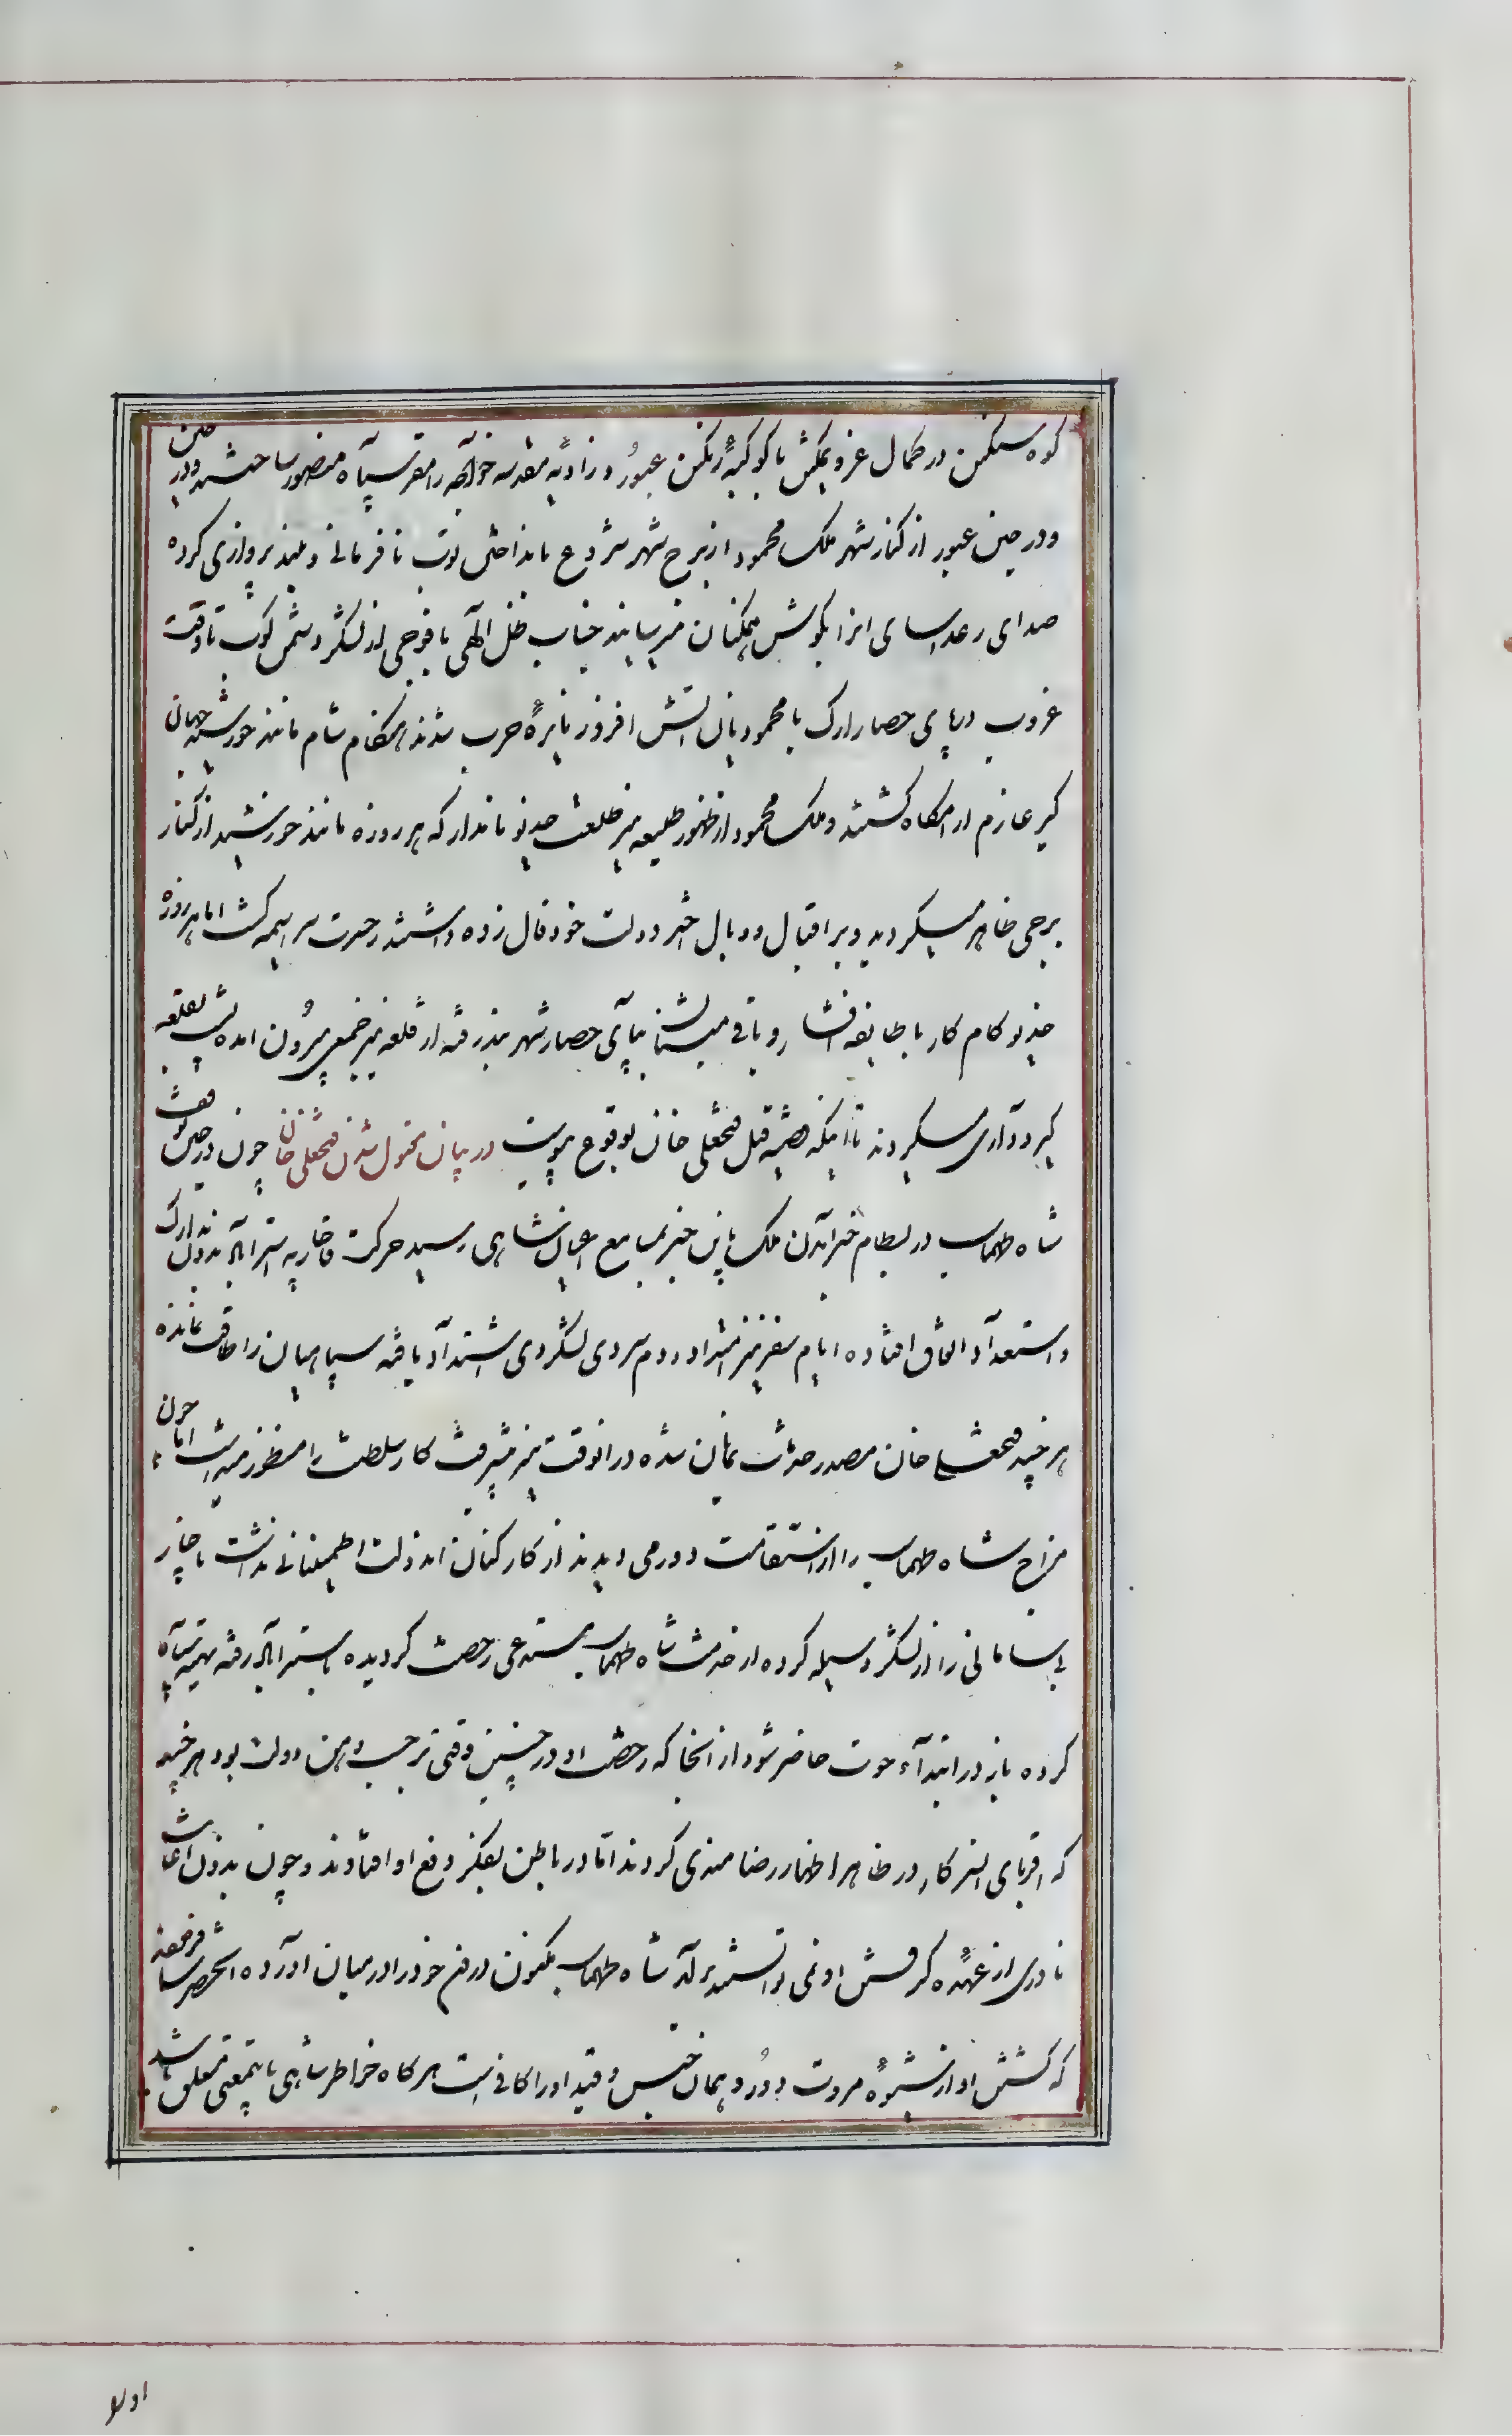 کوه سنگین در کمال عز و تمکین با کوکبهٔ رنگین عبور و زاویه مقدسه خواجه را مقر سپاه منصور ساختند و در حین
و در حین عبور از کنار شهر ملک محمود از برج شهر شروع بانداختن توپ نافرمانی و بلند پروازی کرده
صدای رعد اسای انرا بکوش همکنان میرسانید جناب ظل الهی با فوجی از لشکر دشمن کوب تا وقت
غروب در پای حصار ارک با محمودیان اتش افروز نایرهٔ حرب شدند هنکام شام مانند خورشید جهان
کیر عازم ارامکاه کشتند و ملک محمود از ظهور طلیعه نیر طلعت خدیو نامدار که هر روزه مانند خورشید از کنار
برجی ظاهر میکردید و بر اقبال و وبال اختر دولت خود فال زده داشتند حیرت سراسیمه کشت اما هر روزه
خدیو کام کار با طایفه افشار و باقی میشدند بپای حصار شهر میرفته از قلعه نیز جمعی بیرون امده بقلعه
کیر و داری میکردند تا اینکه قضیه قتل فتحعلی خان بوقوع پیوست در بیان مقتول شدن فتحعلی خان چون در حین توقف
شاه طهماسب در بسطام خبر آمدن ملک باین خبر بمسامع اعیان شاهی رسید حرکت قاجاریه استراباد بدون تدارک
و استعداد اتفاق افتاده ایام سفر نیز امتداد و دم سردی لشکر دی اشتداد یافته سپاهیان را طاقت نمانده
هر چند فتحعلی خان مصدر خدمات نمایان شده در انوقت نیز پیشرفت کار سلطنت را منظور میداشت اما چون
مزاج شاه طهماسب را از استقامت دور می دیدند از کارکنان اندولت اطمینانی نداشت ناچار
بی سامانی را از لشکر وسیله کرده از خدمت شاه طهماسب مستدعی رخصت کردیده باستراباد رفته تهیه سپاه
کرده باز در ابتداء حوت حاضر شود از انجا که رخصت او در چنین وقتی موجب وهن دولت بود هر چند
که اقربای سرکار در ظاهر اظهار رضامندی کردند اما در باطن بفکر دفع او افتادند و چون بدون اعانت
نادری از عهدهٔ کرفتن او نمی توانستند برآمد شاه طهماسب مکنون درضمن خود را در میان اورده انحضرت فرمودند
که کشتن او از شیوهٔ مروت دور و همان حبس و قید او را کافی است هر کاه خواطر شاهی باینمعنی متعلق باشد
اولا